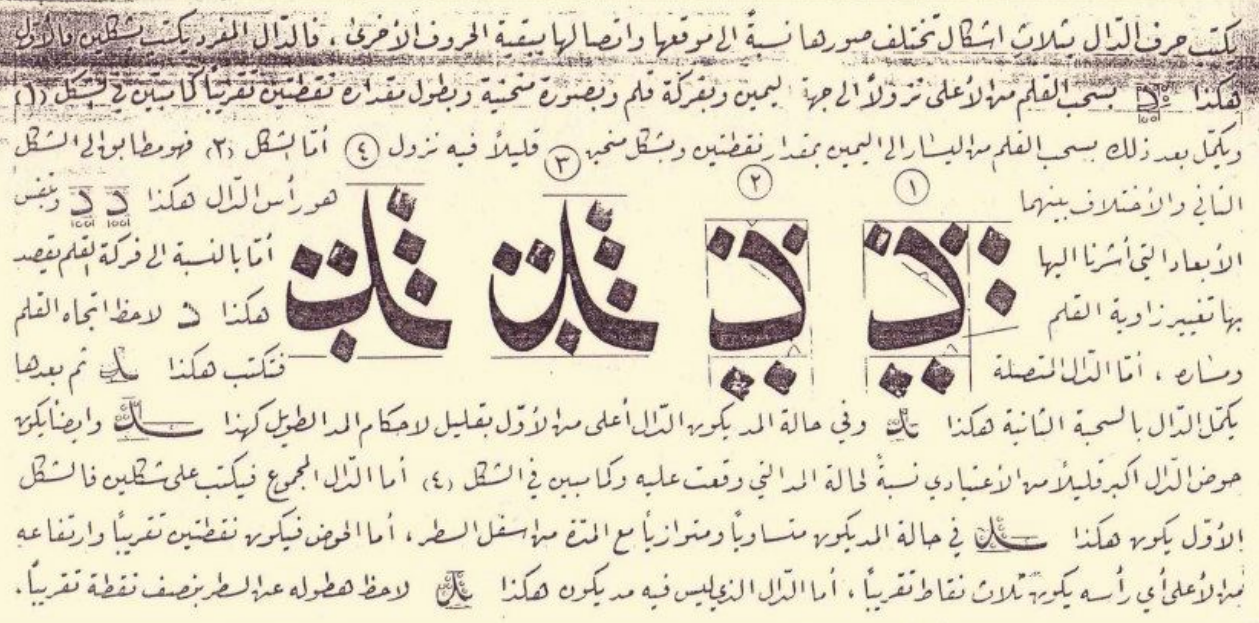 يكتب حرف الدّال بثلاث اشكال تختلف صورها نسبةً الى موقعها واتصالها ببقية الحروف الأخرى ، فالدّال المفرد يكتب بشكلين فالأوّل
هكذا د يسحب القلم من الأعلى نزولاً الى جهة اليمين وبفركة قلم وبصورة منحنية وبطول مقداره نقطتين تقريباً كما مبيّن في شكل (١)
ويكمّل بعد ذلك بسحب القلم من اليسار الى اليمين بمقدار نقطتين وبشكل منحنٍ قليلاً فيه نزول أمّا الشكل (٢) فهو مطابق الى الشكل
١ ٢ ٣ ٤
الثاني والأختلاف بينهما هو رأس الدّال هكذا د د وبنفس
الأبعاد التي أشرنا اليها أمّا بالنسبة الى فركة القلم نقصد
بها تغيير زاوية القلم هكذا د لاحظ اتجاه القلم
ومساره ، أمّا الدّال المتصلة فتكتب هكذا ثم بعدها
يكمّل الدّال بالسحبة الثانية هكذا وفي حالة المد يكون الدّال أعلى من الأوّل بقليل لاحكام المد الطويل كهذا وايضاً يكون
حوض الدّال اكبر قليلاً من الأعتيادي نسبةً لحالة المد التي وقعت عليه وكما مبين في الشكل (٤) أما الدّال المجموع فيكتب على شكلين فالشكل
الأوّل يكون هكذا في حالة المد يكون متساوياً ومتوازياً مع المدّة من اسفل السطر ، أما الحوض فيكون نقطتين تقريباً وارتفاعه
من الأعلى أي رأسه يكون ثلاث نقاط تقريباً ، أما الدّال الذي ليس فيه مد يكون هكذا لاحظ هطوله عن السطر بنصف نقطة تقريباً .